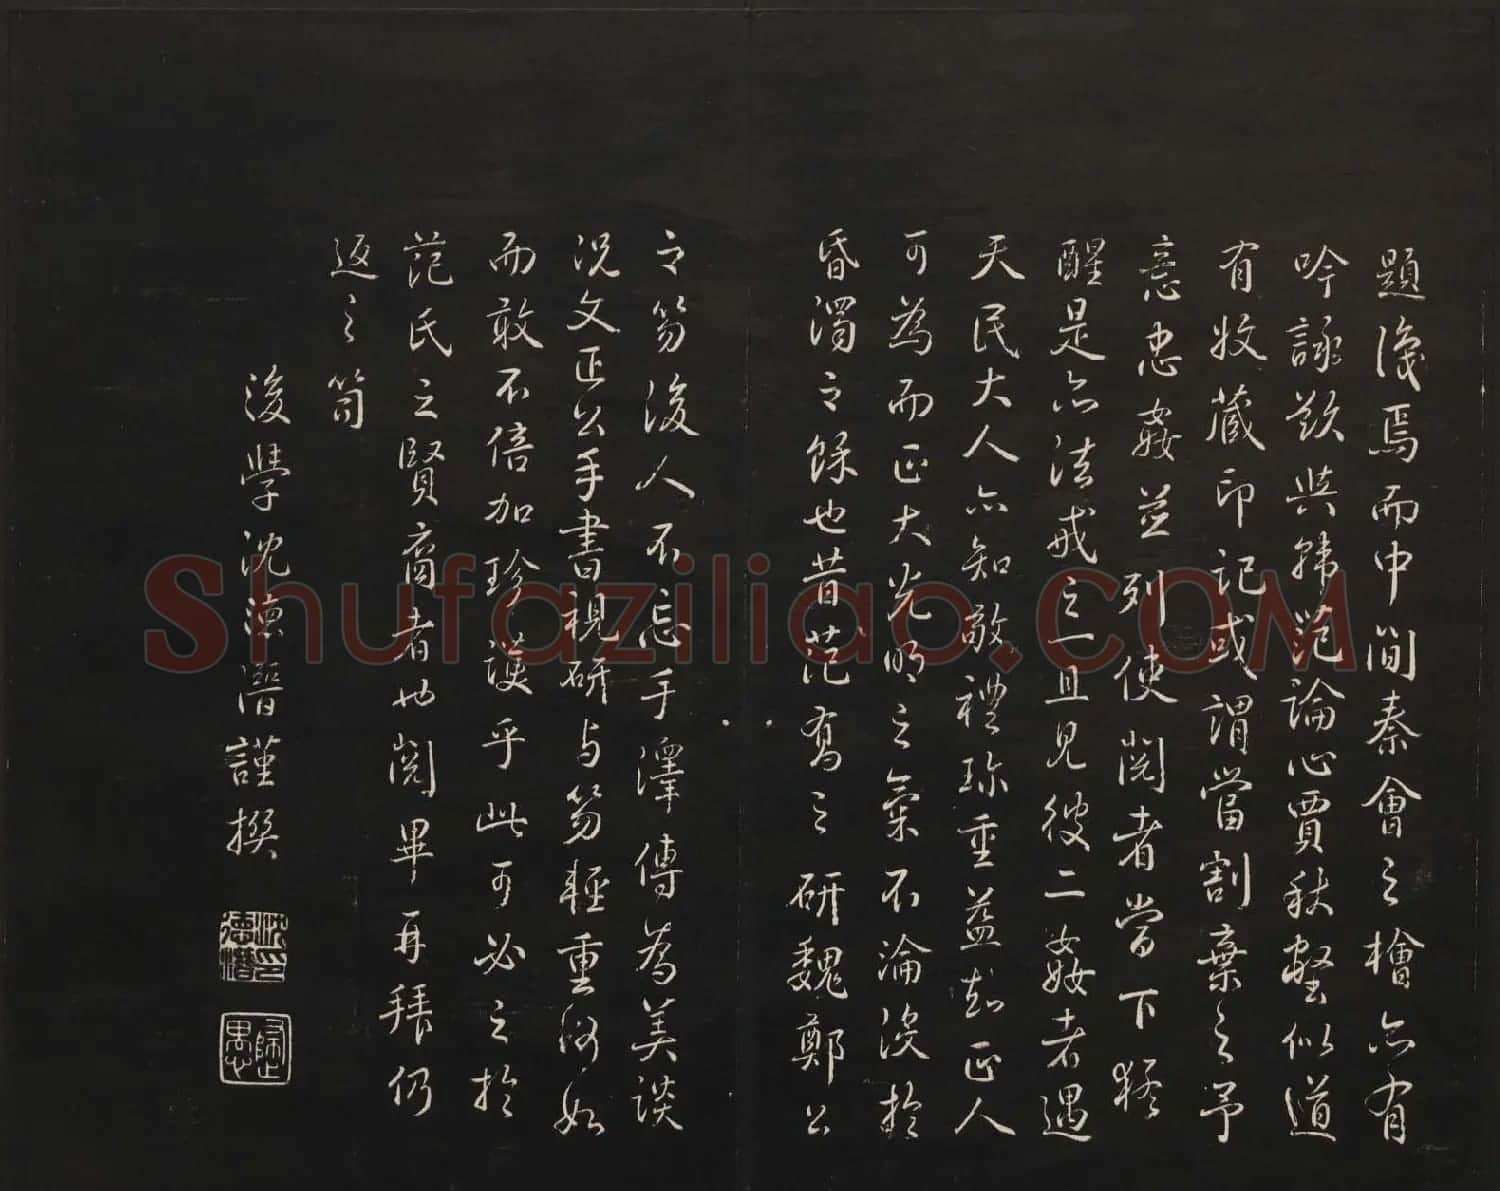 題後焉而中間秦會之檜亦有
吟詠歎與韓范論心賈秋壑似道
有收藏印記或謂當割棄之予
意忠姦並列使閱者當下猛
醒是亦法戒之一且見彼二姦者遇
天民大人亦知敬禮珍重益知正人
可為而正大光明之氣不淪沒於
昏濁之餘也昔范喬之研魏鄭公
之笏後人不忘手澤傳為美談
況文正公手書視研与笏輕重何如
而敢不倍加珍護乎此可必之於
范氏之賢裔者也閱畢再拜仍
返之笥
後學沈德潛謹撰
沈德潛印
歸愚
Shufaziliao.COM